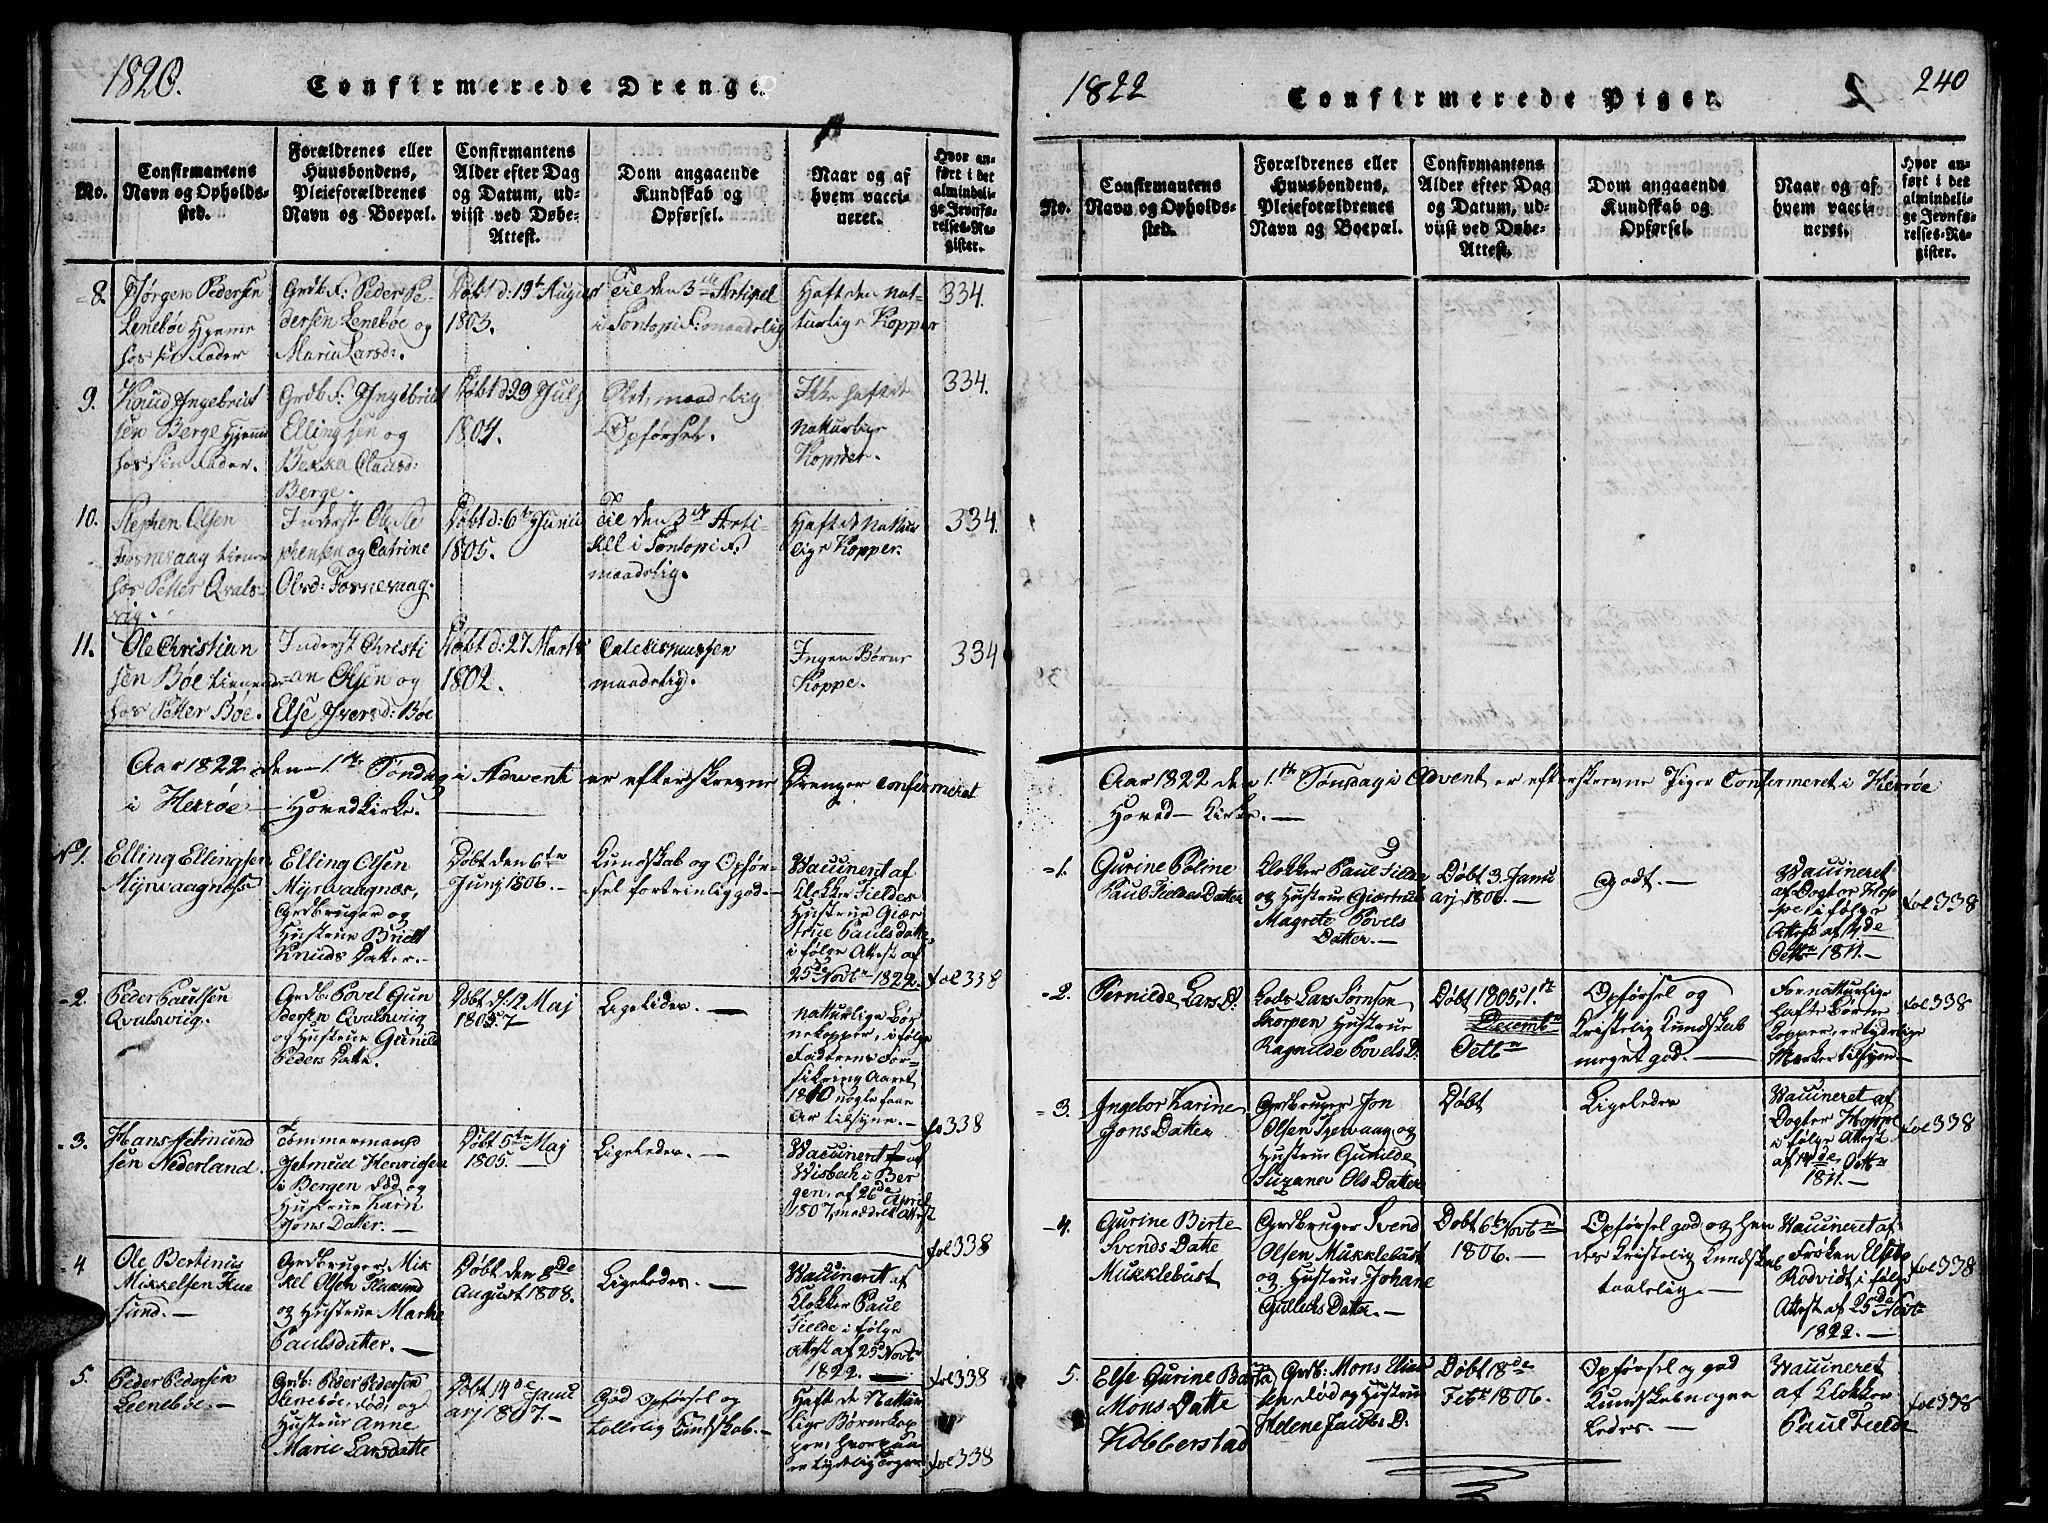 1820.
Confirmerede Drenge.
No.
Confirmantens
Navn og Opholds-
sted.
Forældrenes eller
Huusbondens,
Pleieforældrenes
Navn og Boepæl.
Confirmantens
Alder efter Dag
og Datum, ud-
viist ved Døbe-
Attest.
Dom angaaende
Kundskab og
Opførsel.
Naar og af
hvem vacci-
neret.
Hvor an-
ført i det
almindeli-
ge Jevnfø-
relses-Re-
gister.
8.
Jørgen Pedersen
Lenebøe Hjemme
hos sin Fader
Grdb.f: Peder Pe-
dersen Lenebøe og
Maria Larsd:
Døbt d: 19t August
1803.
Til den 3die Artikel
maadelig
Haft den Nat-
turlige Kopper
334.
9.
Knud Ingebrigt
sen Berge Hjemme
hos sin Fader.
Ellingsen og
Berge.
Døbt d: 29 July
1804.
maadelig
Opførsel.
Ikke haft de
Naturlige
Kopper.
334.
10.
Stephen Olsen
Fosnevaag tiener
hos Petter Qvals-
vig.
Inderst Ole Ste
phensen og Catrine
Olsd: Fosnevaag.
Døbt d: 6te Juni
1805.
Til den 3die Arti-
maadelig.
Haft de Natur
lige Kopper.
334.
11.
Ole Christian
sen Bøe tienende
hos Petter Bøe.
Inderst Christi
an Olsen og
Else Iversd: Bøe
Døbt d: 27 Marts
1802.
maadelig.
Ingen Børne
Koppe.
334
Aar 1822 den 1ste Søndag i Advent er efterskrevne Drenger confirmeret
i Herrøe Hovedkirke.
No 1.
Elling Ellingsen
Myrvaagnæs
Elling Olsen
Myrvaagnæs,
Grdbruger og
Hustrue Britt
Knuds Datter.
Døbt den 6te
Junj 1806.
Kundskab og Opfør-
sel fortrinlig god.
Vaccineret af
Klokker Fieldes
Hustrue Giær
true Paulsdatter
i følge Attest af
25de Novbr 1822.
fol 338
2.
Peder Paulsen
Qvalsviig.
Grdb: Povel Gun
dersen Qvalsviig
og Hustrue Gunild
Peders Datter.
Døbt d: 12 Maj
Ligeledes.
naturlige Bør
nekopper, i følge
Faderens For-
sikring Aaret
1810 nogle faae
Ar tilsyne.
fo 338
3.
Hans Jetmund
sen Nederland.
Tømmermand
Jetmund Henrichsen
i Bergen død og
Hustrue Karn
Jons Datter.
Døbt 5te Maj
1805.
Ligeledes.
Vaccineret af
Wisbech i Ber
gen, af 26de April
1807, meddelt Attest
fol 338
4
Ole Bertinus
Mikkelsen Flue
sund.
Grdbruger Mik
kel Olsen Fluesund
og Hustrue Marthe
Paulsdatter.
Døbt den 8de
August 1808.
Ligeledes.
Vaccineret af
Klokker Paul
Fielde i følge
Attest af 25d Novbr
1822.
fol 338
5.
Peder Pedersen
Leenebøe.
Grdb: Peder Pedersen
Lenebøe, død, og
Hustrue Anne
Marie Larsdatte
Døbt 14de Janu
arj 1807.
God Opførsel og
taalelig Kundskab.
Haft de Nattur
lige Børnekop
per, hvorpaa
fol 338
1822
Confirmerede Piger.
240
No.
Confirmantens
Navn og Opholds-
sted.
Forældrenes eller
Huusbondens,
Pleieforældrenes
Navn og Boepæl.
Confirmantens
Alder efter Dag
og Datum, ud-
viist ved Døbe-
Attest.
Dom angaaende
Kundskab og
Opførsel.
Naar og af
hvem vacci-
neret.
Hvor an-
ført i det
almindeli-
ge Jevnfø-
relses-Re-
gister.
Aar 1822 den 1ste Søndag i Advent er efterskrevne Piger Confirmeret i Herrøe
Hoved-Kirke.
1.
Gurine Poline
Paul Fieldes Datter
Klokker Paul Fielde
og Hustrue Giærtrud
Magrete Povels
Datter.
Døbt 3. Janu
arj 1806.
Godt.
Vaccineret
af Dogtor Hop
pe i følge
Attest af 14de
Octbr 1811.
fol 338
2.
Pernilde Lars D.
Lods Lars Sørnson
Skorpen Hustrue
Ragnilde Povels D.
Døbt 1805, 1ste
Decembr
Octbr
Opførsel og
Kristelig Kundskab
meget god.
For naturlige
hafte Børne
Kopper, er tydelige
Merker tilsyne
fol 338
3.
Ingebor Karine
Jons Datter
Grdbruger Jon
Olsen Igevaag og
Hustrue Gunilde
Suzane Ols Datter
Døbt
Ligeledes
Vaccineret af
Dogter Hoppe
i følge Attest
af 14de Octbr
1811.
fol 338
4.
Gurine Berte
Svends Datte
Mukklebust
Grdbruger Svend
Olsen Mukklebust
og Hustrue Johane
Gulliks Datter.
Døbt 6te Novbr
1806.
Opførsel god og hen
des Kristelig Kundskab
taalelig.
Vaccineret af
Frøken Elbeg
Rodvidt i følge
Attest af 25de Novbr
1822.
fol 338
5.
Else Gurine Berta
Mons Datte
Kobberstad
Grdb: Mons Elias
sen død og Hustrue
Helene Jacobs D.
Døbt 18de
Febr 1806.
Opførsel god
Kundskab nogen
ledes.
Vaccineret
af Klokker
Paul Fielde
fol 338